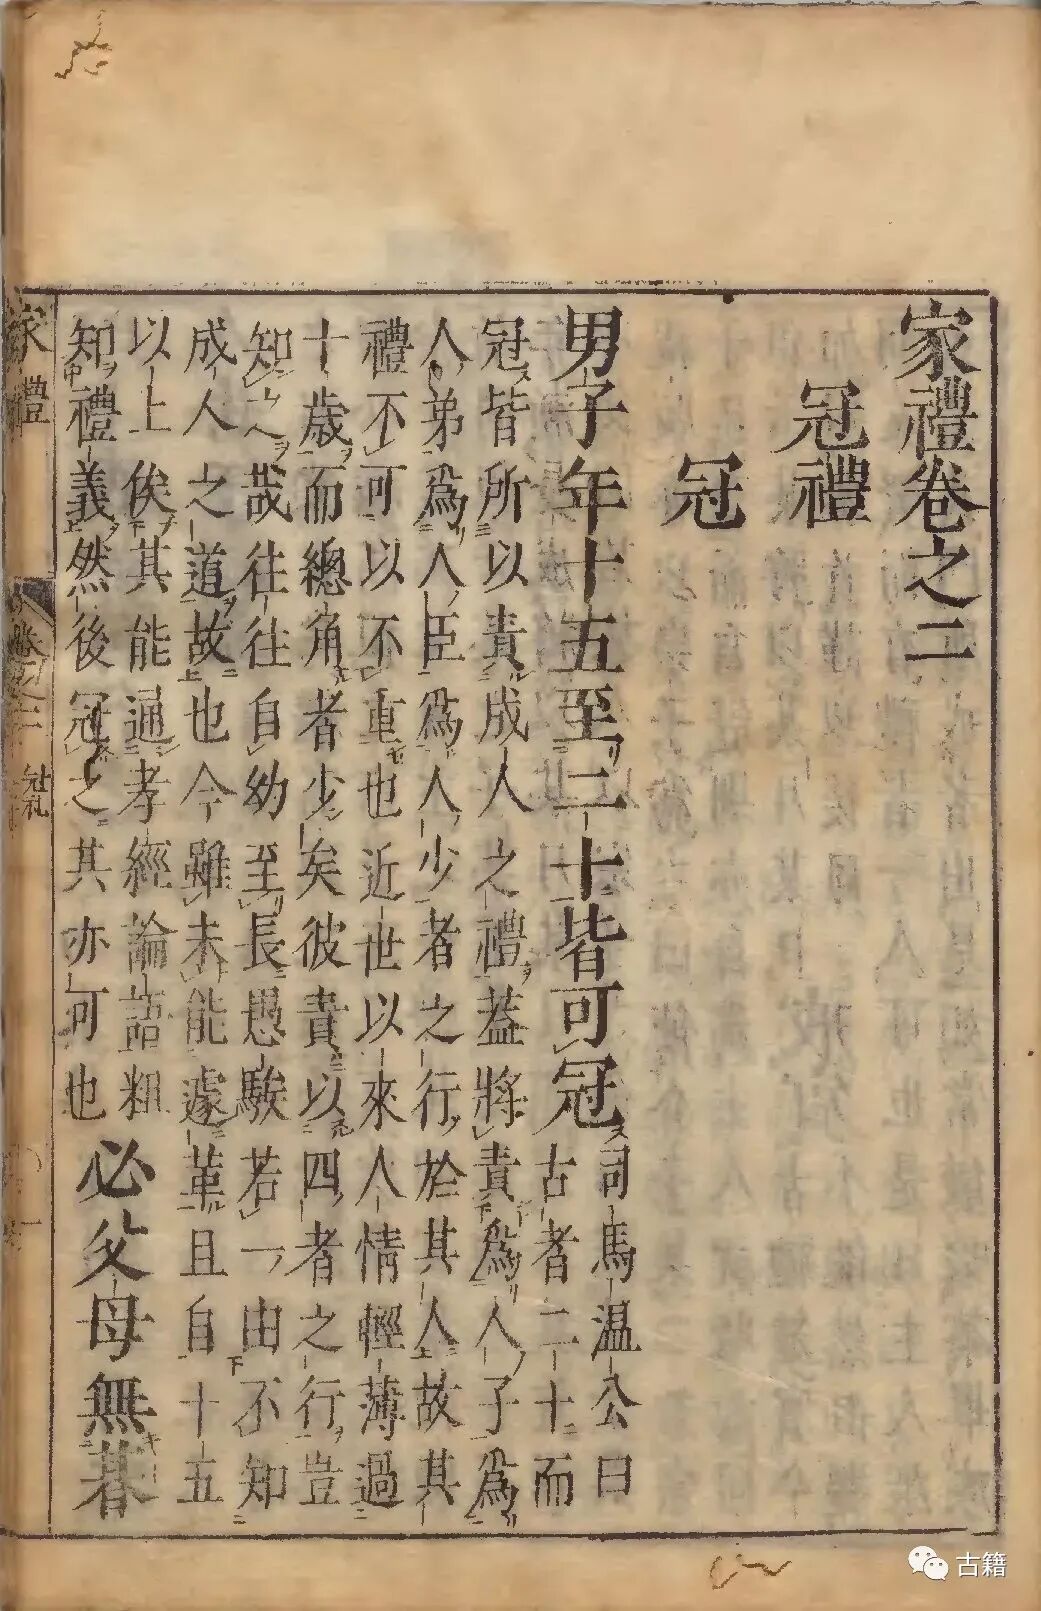 家禮卷之二
冠禮
冠
男子年十五至二十皆可冠
司馬温公曰
古者二十而
冠皆所以責成人之禮蓋將責爲人子爲
人弟爲人臣爲人少者之行於其人故其
禮不可以不重也近世以來人情輕薄過
十歲而總角者少矣彼責以四者之行豈
知之哉往往自幼至長愚騃若一由不知
成人之道故也今雖未能遽革且自十五
以上俟其能通孝經論語粗
知禮義然後冠之其亦可也
必父母無朞
家禮
冠礼
一
古籍